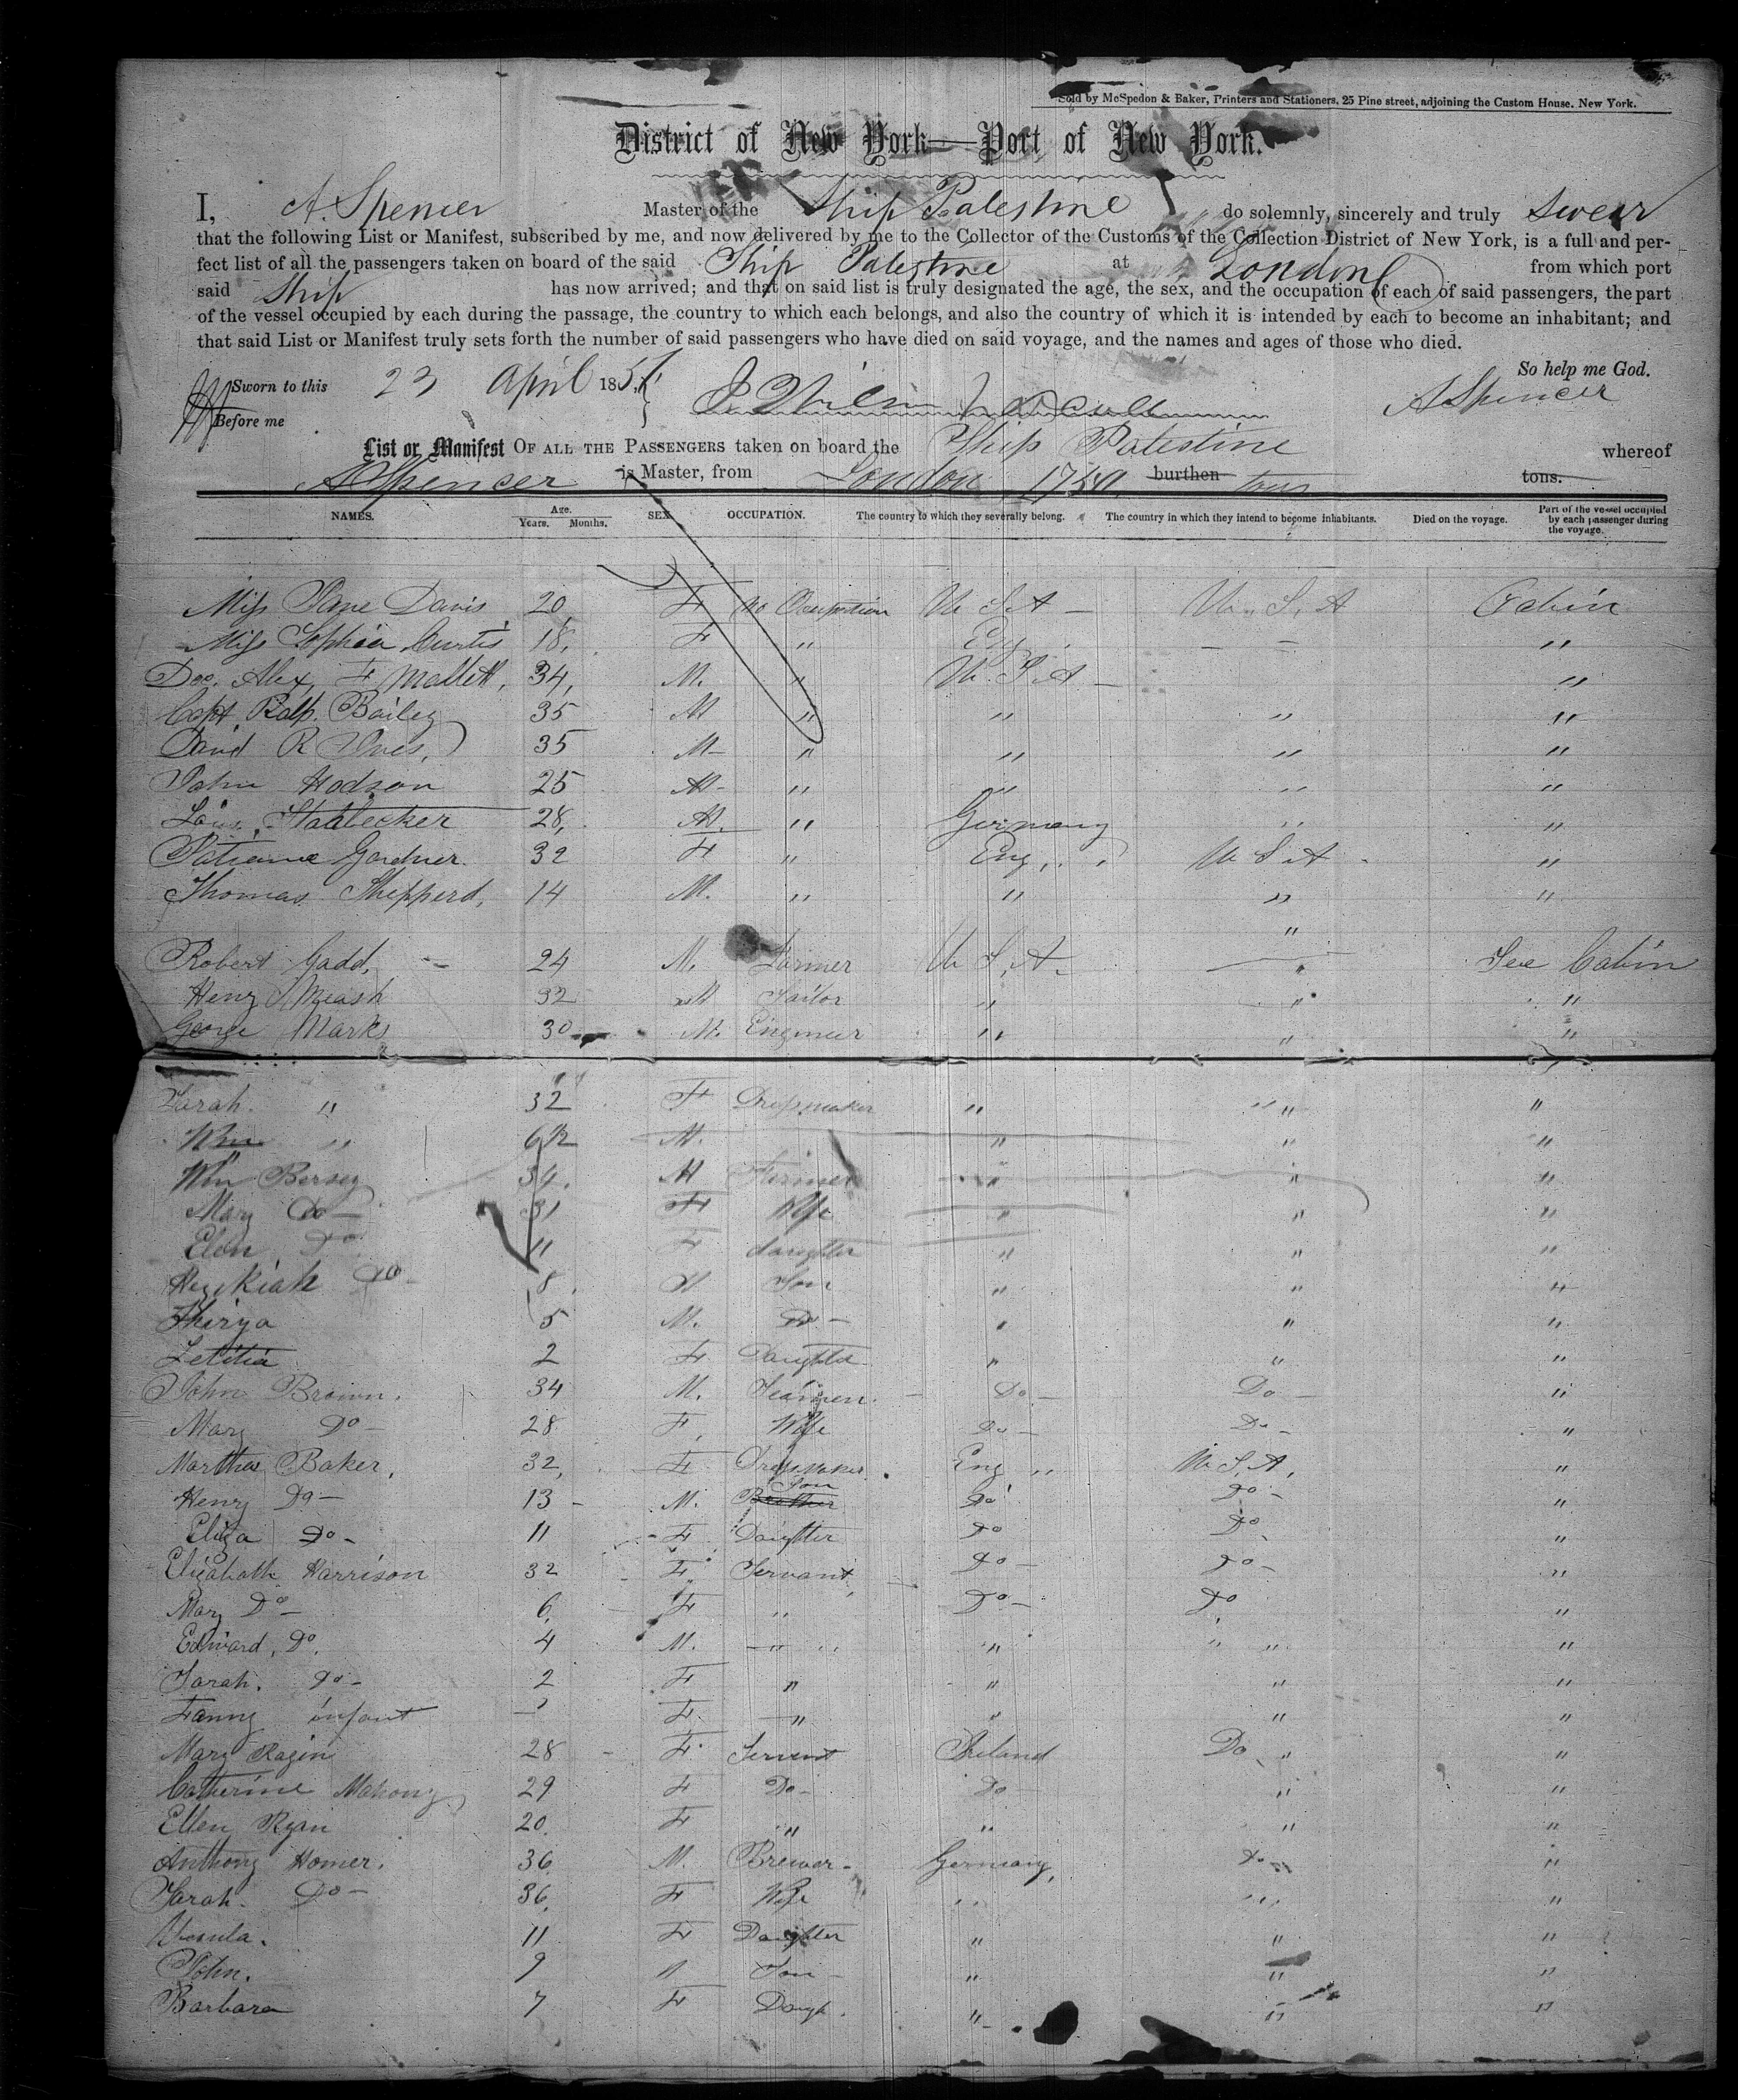 Sold by McSpedon & Baker, Printers and Stationers, 25 Pine street, adjoining the Custom House, New York.
District of New York—Port of New York.
I, A. Spencer Master of the Ship Palestine do solemnly, sincerely and truly swear
that the following List or Manifest, subscribed by me, and now delivered by me to the Collector of the Customs of the Collection District of New York, is a full and per-
fect list of all the passengers taken on board of the said Ship Palestine at London from which port
said Ship has now arrived; and that on said list is truly designated the age, the sex, and the occupation of each of said passengers, the part
of the vessel occupied by each during the passage, the country to which each belongs, and also the country of which it is intended by each to become an inhabitant; and
that said List or Manifest truly sets forth the number of said passengers who have died on said voyage, and the names and ages of those who died.
So help me God.
Sworn to this 23 April 185 A Spencer
Before me
List or Manifest OF ALL THE PASSENGERS taken on board the Ship Palestine whereof
A Spencer is Master, from London burthen tons tons.
NAMES. Age. Years. Months. SEX. OCCUPATION. The country to which they severally belong. The country in which they intend to become inhabitants. Died on the voyage. Part of the vessel occupied by each passenger during the voyage.
Miss Jane Davis 20 F no Occupation U.S.A - U.S.A Cabin
Miss Sophia Curtis 18 F " Eng - "
Doc. Alex. F Mallett, 34, M. " U.S.A - "
Capt. Ralp. Bailey 35 M " " " "
David R Ives, 35 M - " " " "
John Hodson 25 M - " " " "
Louis 28, M. " Germany " "
Gardner. 32 F " Eng. U S A - "
Thomas Shepperd, 14 M. " " " "
"
Robert Gadd, - 24 M. Farmer U.S.A - " Sec Cabin
Henry 32 M Tailor " " "
George Marks 30 M. Engineer " " "
Sarah " 32 F Dressmaker " " "
Wm " M. " " "
Wm Bersey 34. M Farmer " " "
Mary Do - 31 F Wife " " "
Elen Do 11 F daughter " " "
Hezekiah Do - 8 M Son " " "
Thirza 5 M. Do - " " "
Letitia 2 F Daughter " " "
John Brown. 34 M. Seamen. - Do - Do - "
Mary Do - 28 F. Wife Do - Do - "
Martha Baker, 32, F Dressmaker. Eng " U.S.A. "
Henry Do - 13 - M. Brother Son Do Do - "
Eliza Do - 11 F Daughter Do Do "
Elizabath Harrison 32 F Servant Do - Do - "
Mary Do - 6 F " Do - Do "
Edward, Do. 4 M. " " " "
Sarah. Do - 2 F " " " "
Fanny infant F. " " " "
Mary Ragin 28 - F Servent Ireland Do " "
Catherine Mahony 29 F Do - Do - " "
Ellen Ryan 20. F " " " "
Anthony Homer. 36 M. Brewer - Germany, Do " "
Sarah. Do - 36. F Wife " " "
Ursula. 11 F Daughter " " "
John. 9 M Son - " " "
Barbara 7 F Daugh. " " "